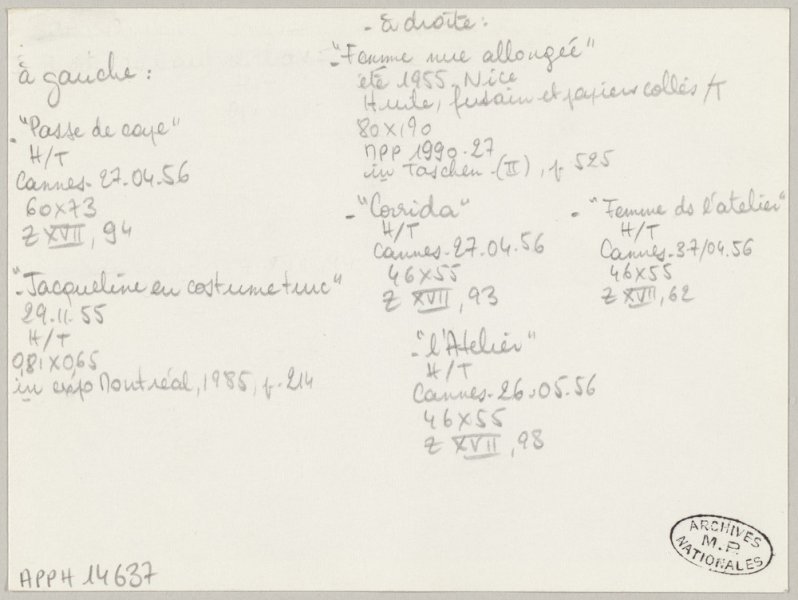 à gauche :
- "Passe de cape"
H/T
Cannes. 27.04.56
60x73
Z XVII, 94
- "Jacqueline en costume turc"
29.11.55
H/T
0,81x0,65
in expo Montréal, 1985, p. 214
- à droite :
- "Femme nue allongée"
été 1955, Nice
Huile, fusain et papiers collés /T
80x190
MPP 1990-27
in Taschen (II), p. 525
- "Corrida"
H/T
Cannes. 27.04.56
46x55
Z XVII, 93
- "Femme ds l'atelier"
H/T
Cannes. /04.56
46x55
Z XVII, 62
- "l'Atelier"
H/T
Cannes. 26.05.56
46x55
Z XVII, 98
APPH 14637
ARCHIVES
M.P.
NATIONALES